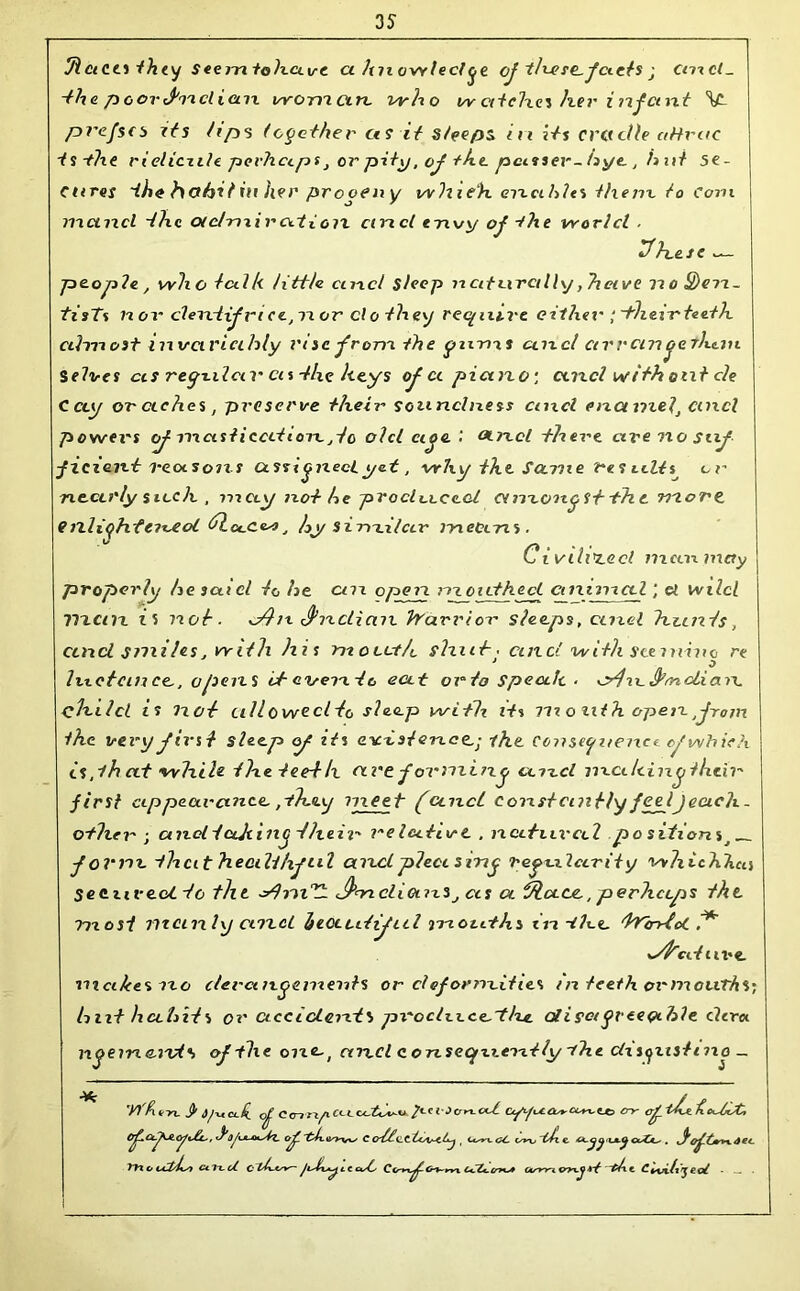 35
Races they seem to have a knowledge of these facts; and
the poor Indian woman who watches her infant &
presses its lips together as it sleeps in its cradle attrac
ts the ridicule perhaps, or pity, of the passer-bye, but se-
cures the habit in her progeny which enables them to com
mand the admiration and envy of the world.
These —
people, who talk little and sleep naturally, have no Den-
tists nor dentifrice, nor do they require either; their teeth
almost invariably rise from the gums and arrange them
selves as regular as the keys of a piano; and without de
cay or aches, preserve their soundness and enamel, and
powers of mastication, to old age: and there are no suf
ficient reasons assigned yet, why the same results or
nearly such, may not be produced amongst the more
enlightened Races, by similar means.
Civilized man may
properly be said to be an open mouthed animal; a wild
man is not. An Indian Warrior sleeps, and hunts,
and smiles, with his mouth shut; and with seeming re
luctance, opens it even to eat or to speak. An Indian
child is not allowed to sleep with its mouth open, from
the very first sleep of its existence; the consequence of which
is, that while the teeth are forming and making their
first appearance, they meet (and constantly feel) each-
other; and taking their relative, natural positions, —
form that healthful and pleasing regularity which has
secured to the Amn. Indians, as a Race, perhaps the
most manly and beautiful mouths in the World.*
Nature
makes no derangements or deformities in teeth or mouths;
but habits or accidents produce the disagreeable dera
ngements of the one, and consequently the disgusting —
* When I speak of comparative personal appearances or of the habits
of a people, I speak of them collectively, and in the aggregate. Instances
mouths and other physical conformations amongst the Civilized